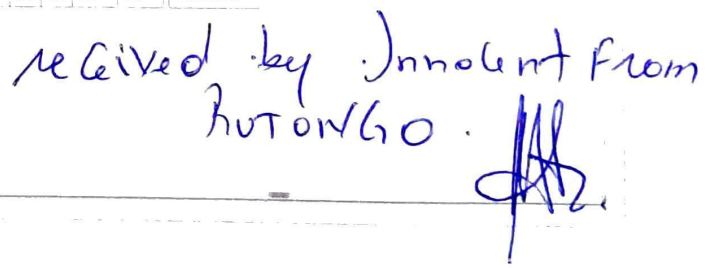 received by Innocent From
RUTONGO.